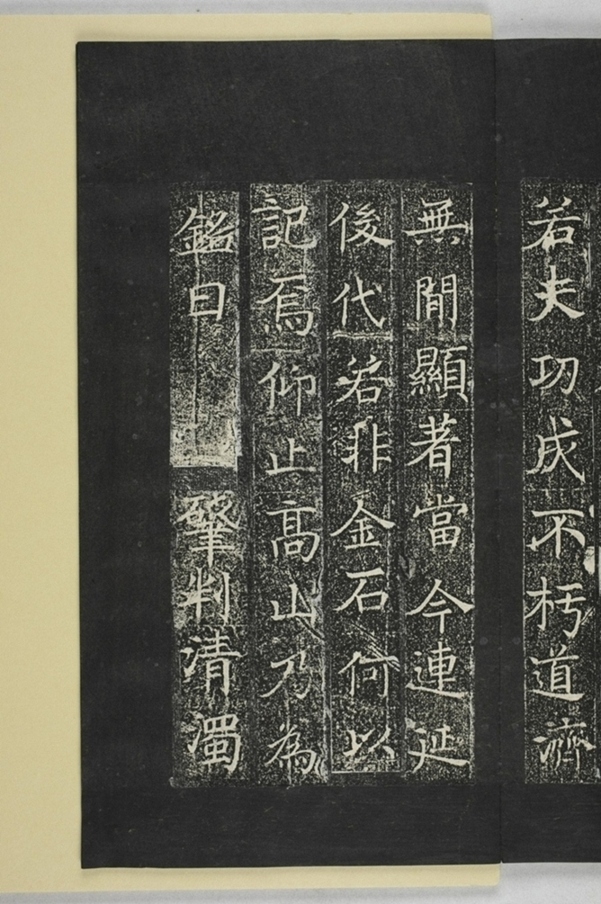 若夫功成不朽道濟
無閒顯著當今連延
後代若非金石何以
記焉仰止高山乃為
銘曰 肇判清濁